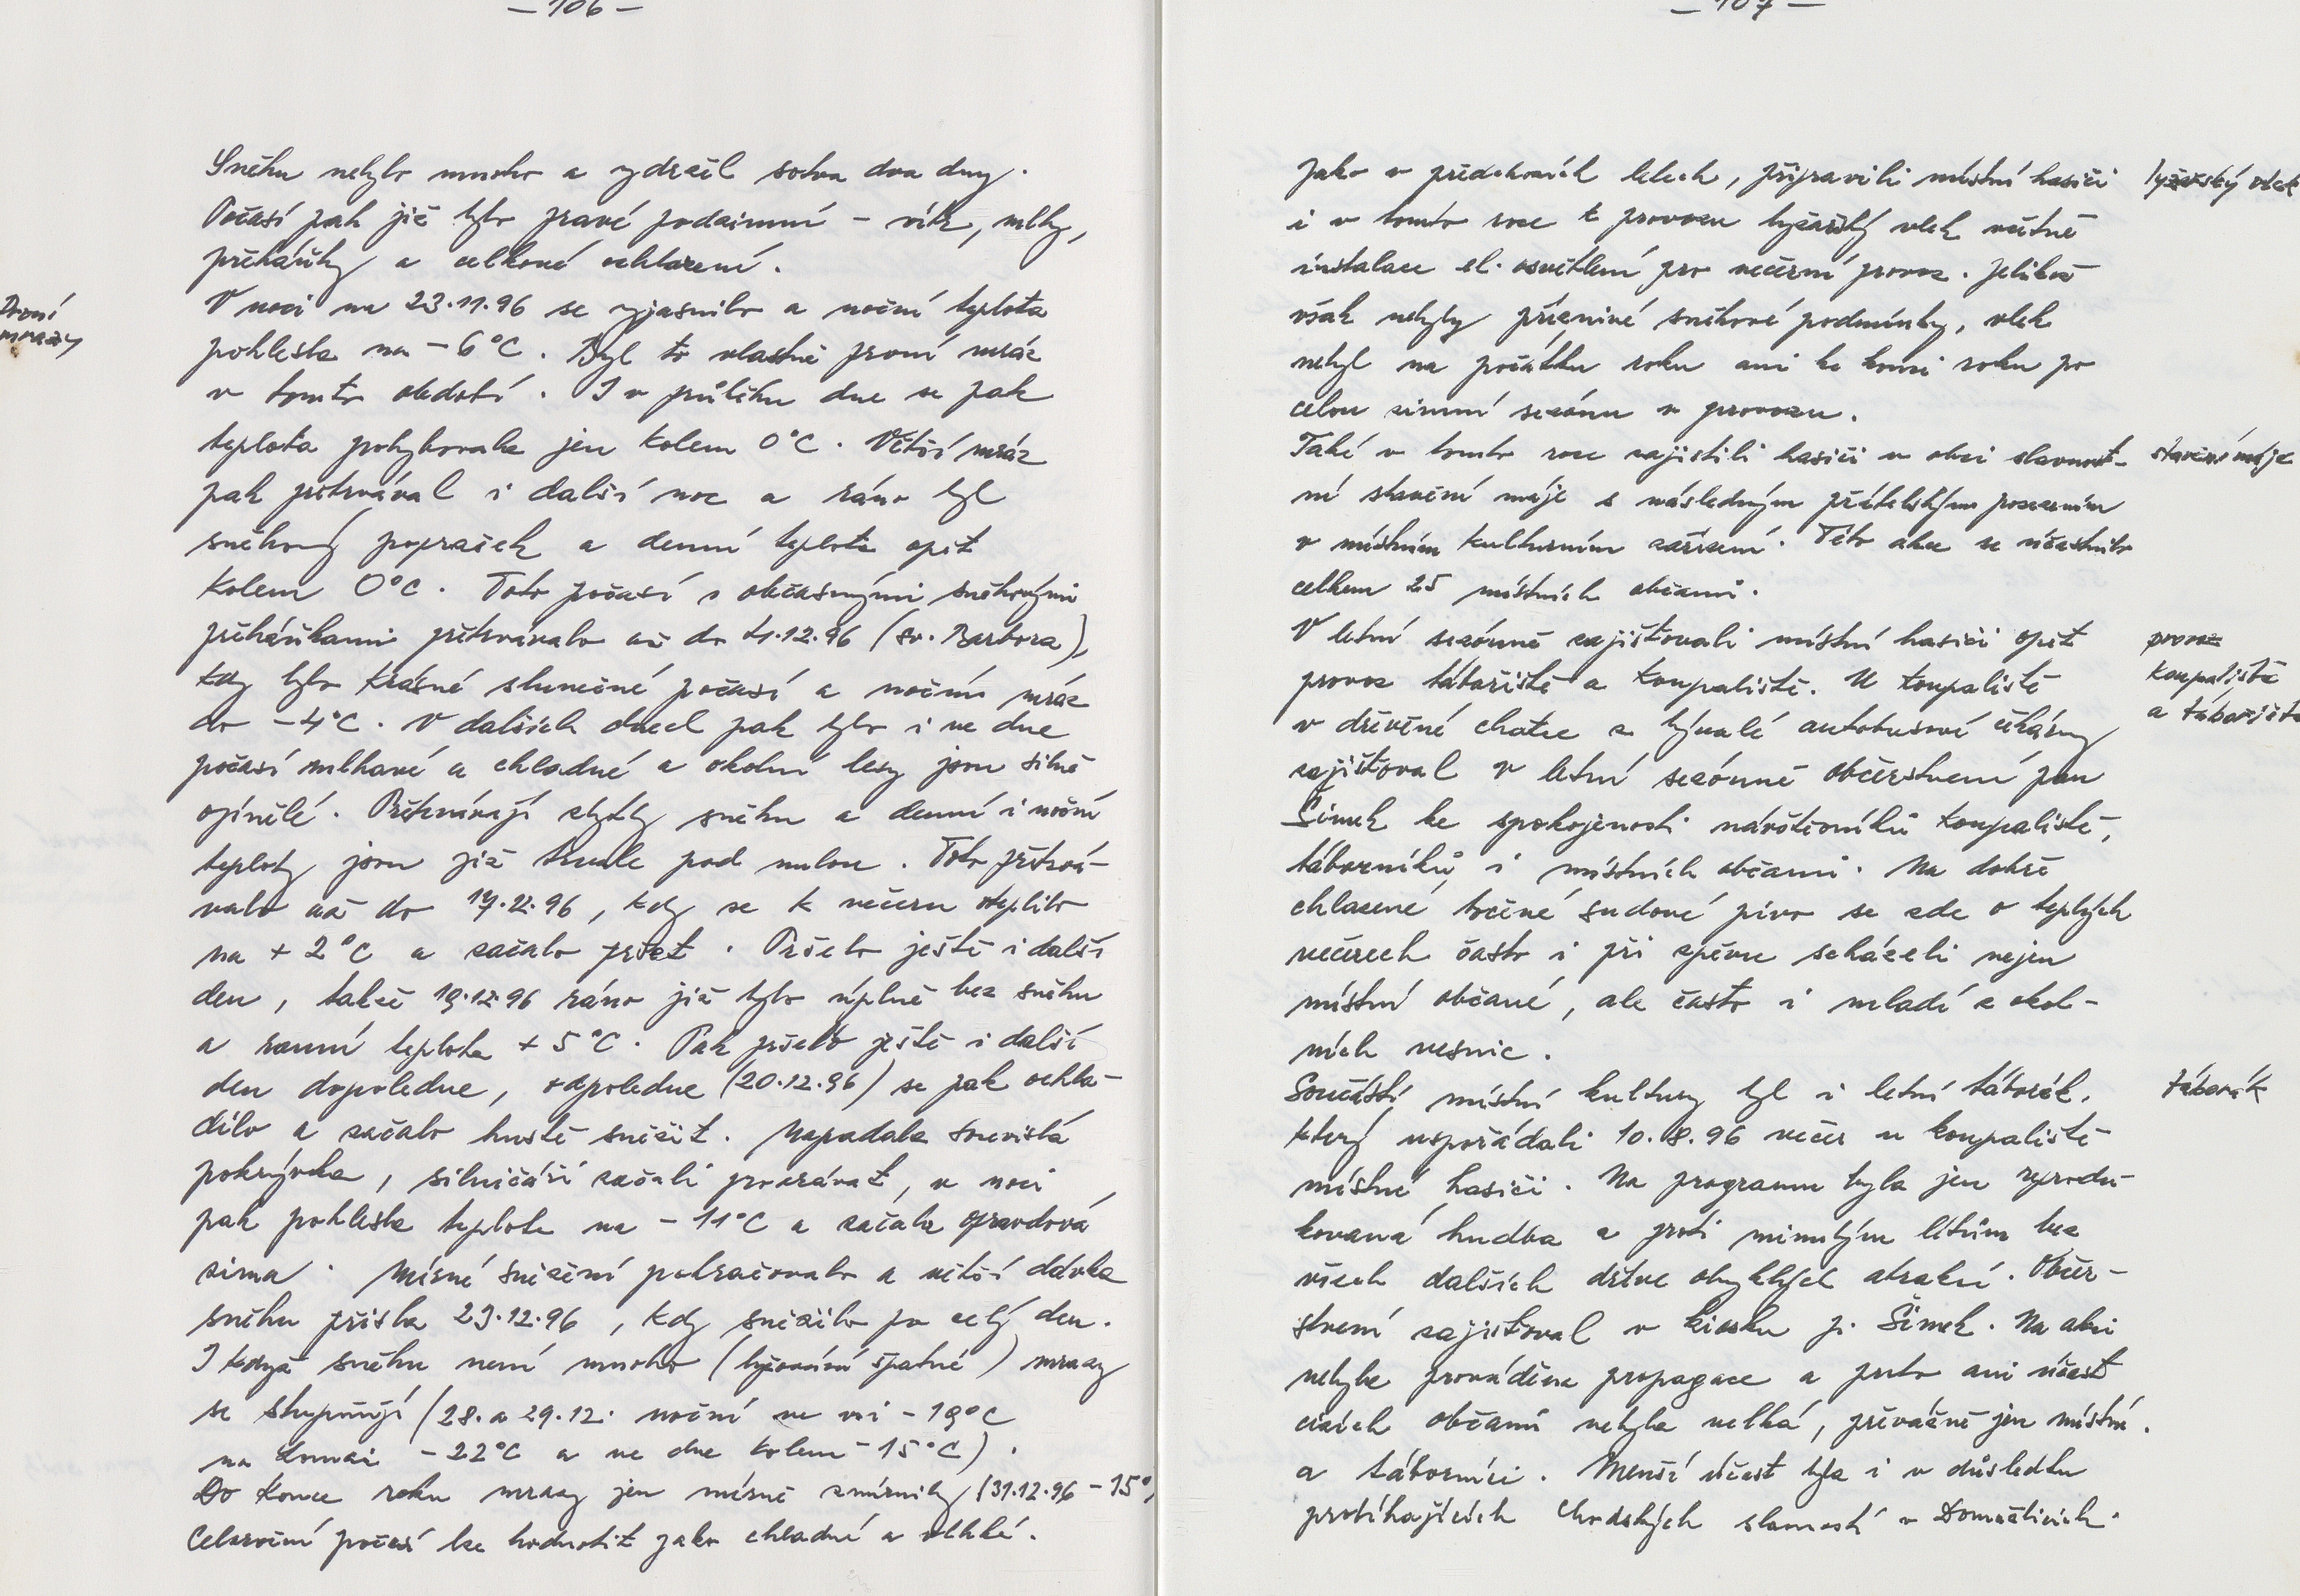 – 106 –
Sněhu nebylo mnoho a vydržel sotva dva dny.
Počasí pak již bylo pravé podzimní – vítr, mlhy,
přeháňky a celkové ochlazení.
První
mrazy
V noci na 23.11.96 se vyjasnilo a noční teplota
poklesla na – 6°C. Byl to vlastně první mráz
v tomto období. I v průběhu dne se pak
teplota pohybovala jen kolem 0°C. Větší mráz
pak přetrvával i další noc a ráno byl
sněhový poprašek a denní teplota opět
kolem 0°C. Toto počasí s občasnými sněhovými
přeháňkami přetrvávalo až do 4.12.96 (sv. Barbora),
kdy bylo krásné slunečné počasí a noční mráz
do –4°C. V dalších dnech pak bylo i ve dne
počasí mlhavé a chladné a okolní lesy jsou silně
ojínělé. Přetrvávají zbytky sněhu a denní i noční
teploty jsou již trvale pod nulou. Toto přetrvá-
valo až do 17.12.96, kdy se k večeru oteplilo
na + 2°C a začalo pršet. Pršelo ještě i další
den, takže 19.12.96 ráno již bylo úplně bez sněhu
a ranní teplota + 5°C. Pak pršelo ještě i další
den dopoledne, odpoledne (20.12.96) se pak ochla-
dilo a začalo hustě sněžit. Napadala souvislá
pokrývka, silničáři začali provrávat, v noci
pak poklesla teplota na – 11°C a začala opravdová
zima. Mírné sněžení pokračovalo a větší dávka
sněhu přišla 23.12.96, kdy sněžilo po celý den.
I když sněhu není mnoho (lyžování špatné) mrazy
se stupňují (28. a 29.12. noční ve vsi – 19°C
na Lomci – 22°C a ve dne kolem – 15°C).
Do konce roku mrazy jen mírně zmírnily (31.12.96 – 15°)
Celoroční počasí lze hodnotit jako chladné a vlhké.
– 107 –
Jako v předchozích letech, připravili místní hasiči
lyžařský vlek
i v tomto roce k provozu lyžařský vlek včetně
instalace el. osvětlení pro večerní provoz. Jelikož
však nebyly příznivé sněhové podmínky, vlek
nebyl na počátku roku ani ke konci roku po
celou zimní sezónu v provozu.
Také v tomto roce zajistili hasiči v obci slavnost-
stavění máje
ní stavění máje s následným přátelským posezením
v místním kulturním zařízení. Této akce se účastnilo
celkem 25 místních občanů.
V letní sezónně zajišťovali místní hasiči opět
provoz
koupaliště
a tábořiště
provoz tábořiště a koupaliště. U koupaliště
v dřevěné chatce z bývalé autobusové čekárny
zajišťoval v letní sezónně občerstvení pan
Šimek ke spokojenosti návštěvníků koupaliště,
táborníků i místních občanů. Na dobře
chlazené točené sudové pivo se zde o teplých
večerech často i při zpěvu scházeli nejen
místní občané, ale často i mladí z okol-
ních vesnic.
Součástí místní kultury byl i letní táborák,
táborák
který uspořádali 10.8.96 večer u koupaliště
místní hasiči. Na programu byla jen reprodu-
kovaná hudba a proti minulým létům bez
všech dalších dříve obvyklých atrakcí. Občer-
stvení zajišťoval v kiosku p. Šimek. Na akci
nebyla prováděna propagace a proto ani účast
cizích občanů nebyla velká, převážně jen místní.
a táborníci. Menší účast byla i v důsledku
probíhajících Chodských slavností v Domažlicích.